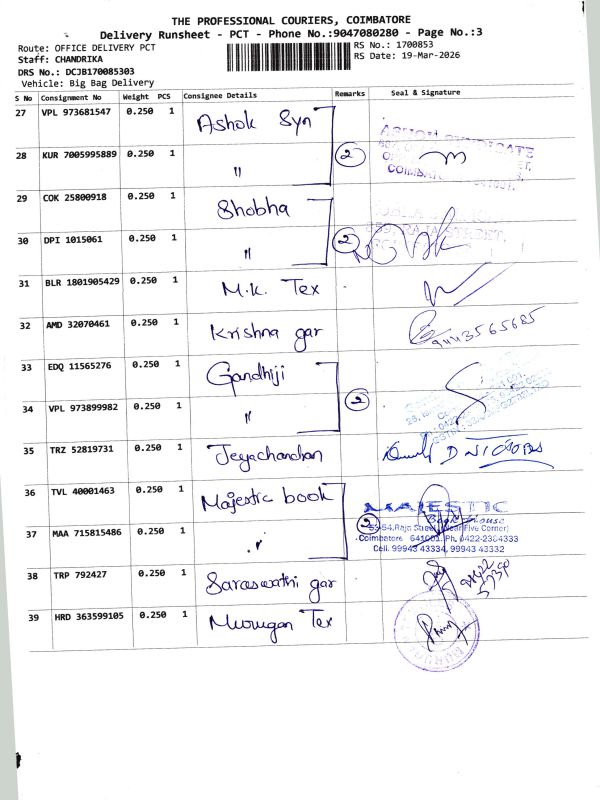 THE PROFESSIONAL COURIERS, COIMBATORE
Delivery Runsheet - PCT - Phone No.:9047080280 - Page No.:3
Route: OFFICE DELIVERY PCT
RS No.: 1700853
Staff: CHANDRIKA
RS Date: 19-Mar-2026
DRS No.: DCJB170085303
Vehicle: Big Bag Delivery
S No Consignment No Weight PCS Consignee Details Remarks Seal & Signature
27 VPL 973681547 0.250 1 Ashok Syn
28 KUR 7005995889 0.250 1 " 2
ASHOK SYNDICATE
COIMBATORE
29 COK 25800918 0.250 1 Shobha
30 DPI 1015061 0.250 1 " 2
RAJA STREET,
31 BLR 1801905429 0.250 1 M.K. Tex
32 AMD 32070461 0.250 1 Krishna gar 9443565685
33 EDQ 11565276 0.250 1 Gandhiji
34 VPL 973899982 0.250 1 " 2
35 TRZ 52819731 0.250 1 Jeyachandran
36 TVL 40001463 0.250 1 Majestic book
MAJESTIC
Book House
37 MAA 715815486 0.250 1 " 2
53-54,Raja Street, (Near Five Corner)
Coimbatore 641001. Ph. 0422-2384333
Cell: 99943 43334, 99943 43332
38 TRP 792427 0.250 1 Saraswathi gar
39 HRD 363599105 0.250 1 Murugan Tex